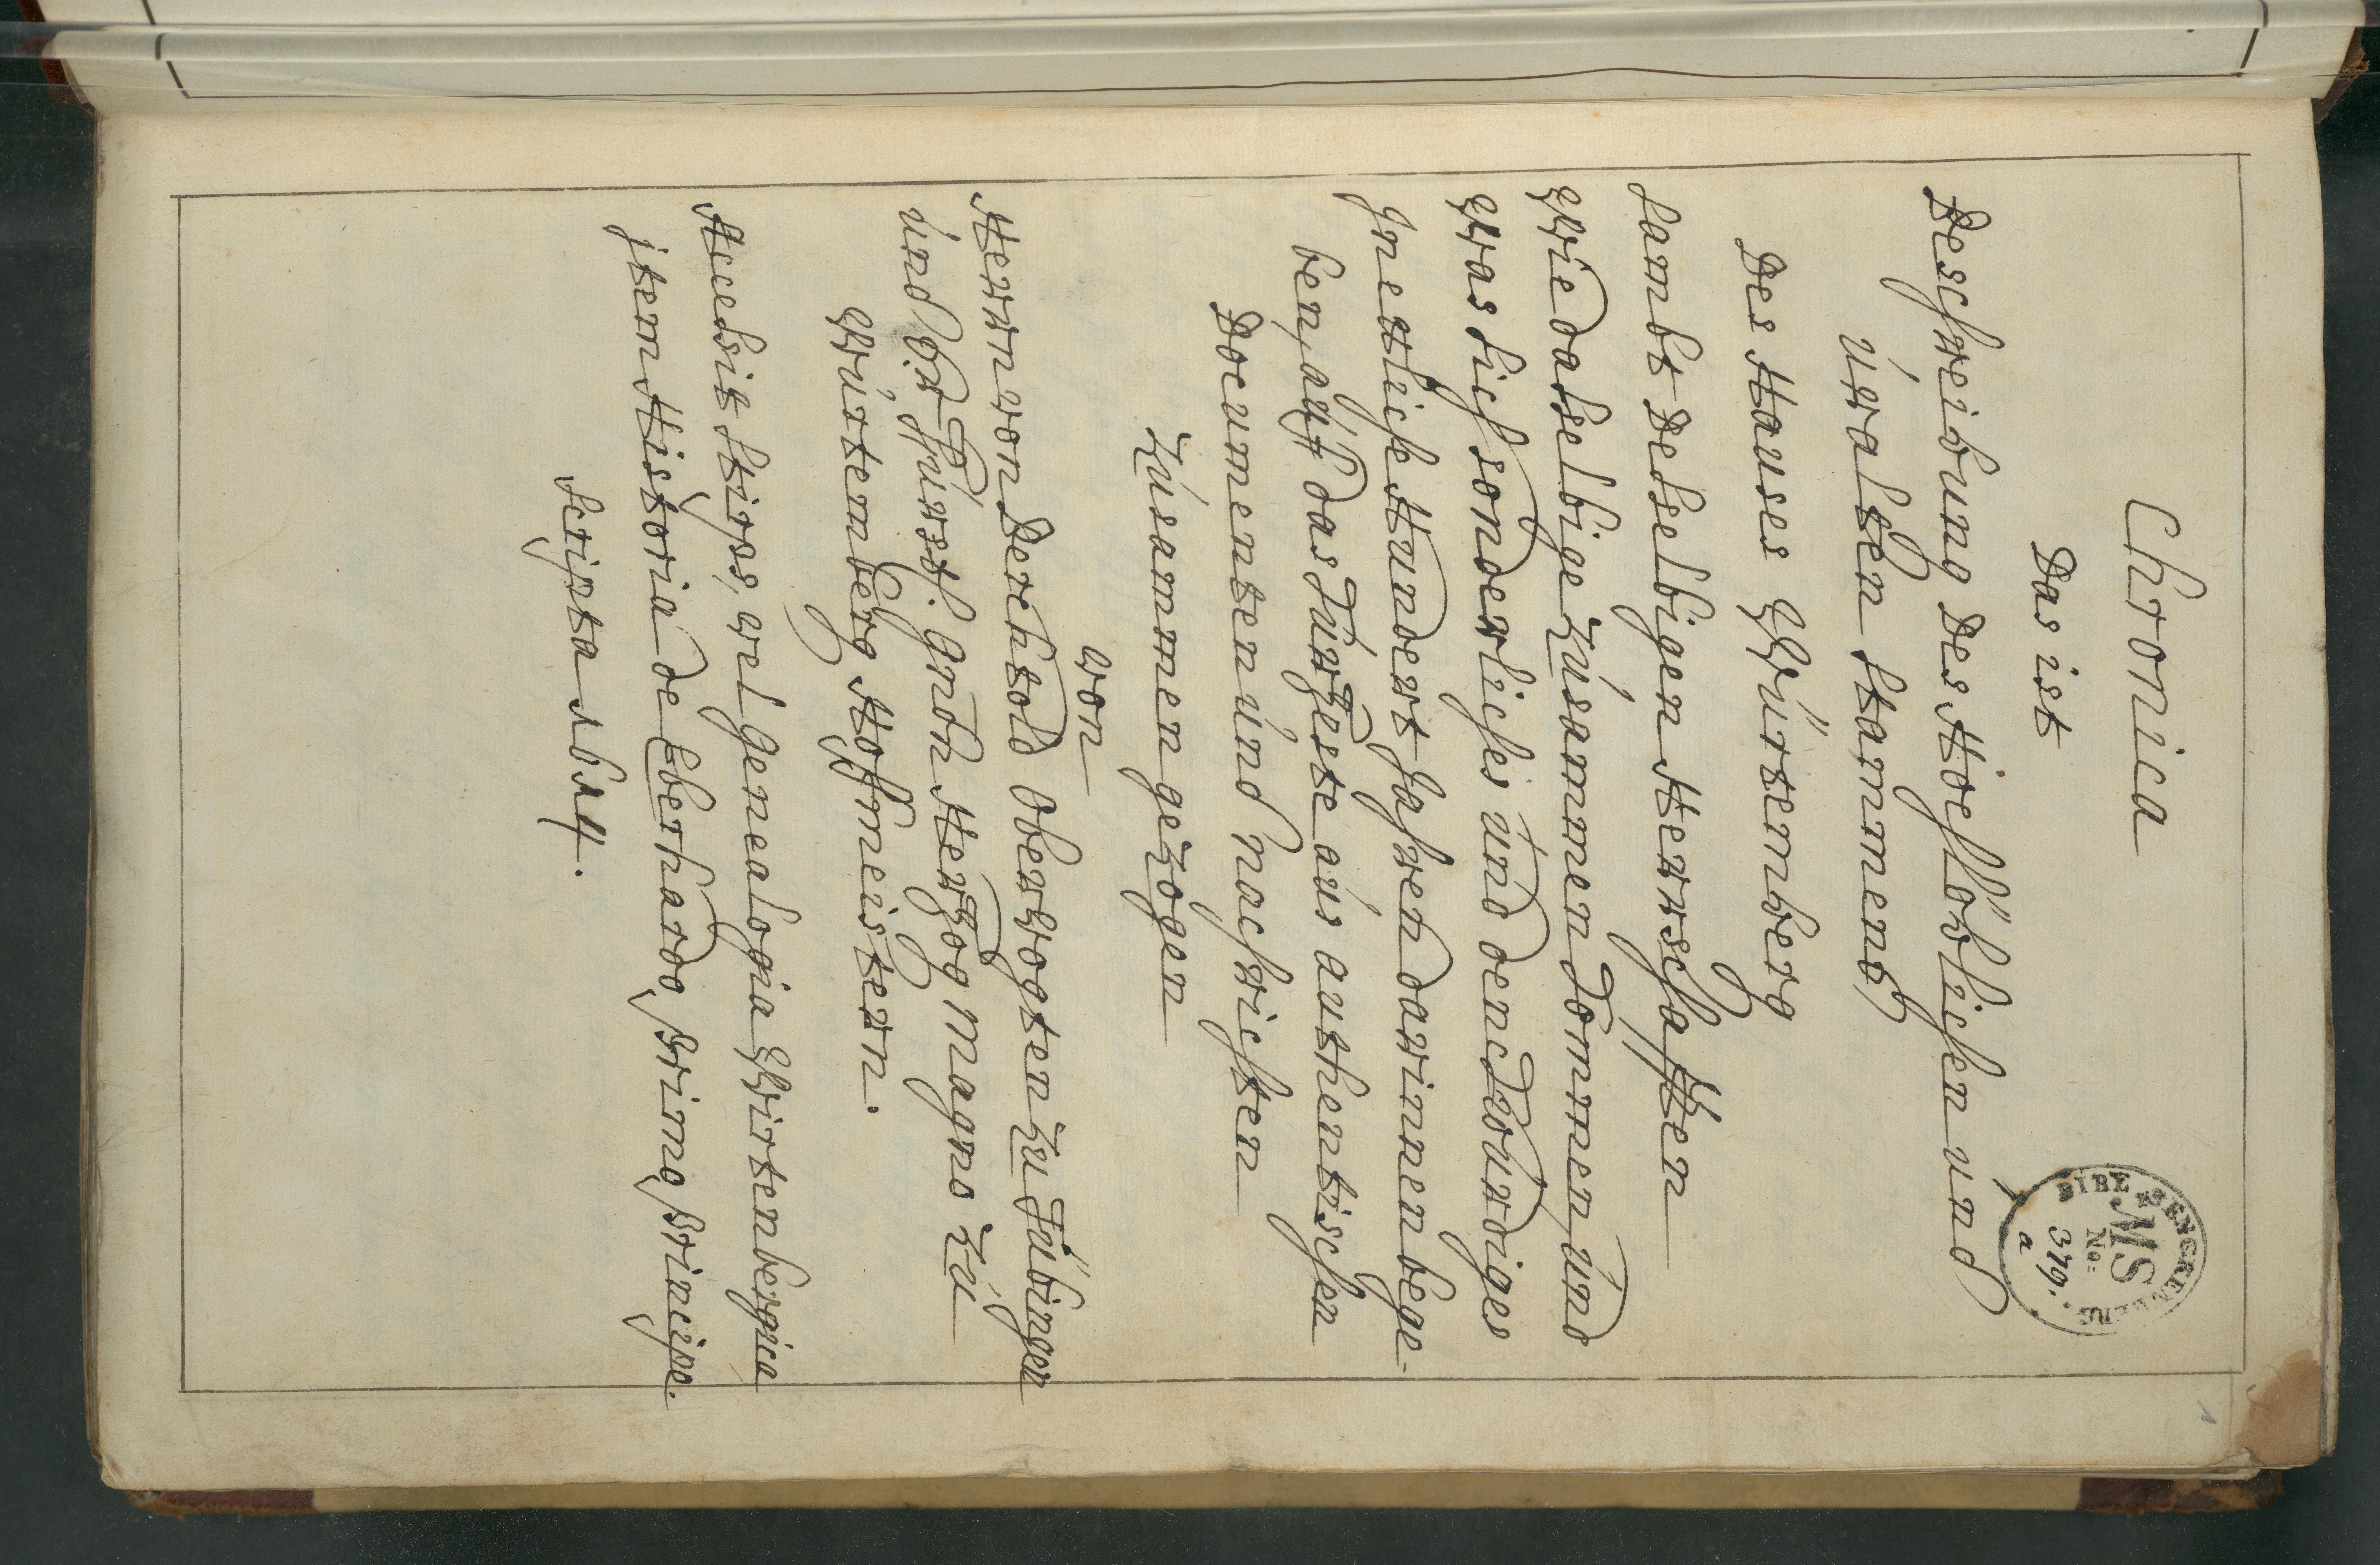 Chronica
Das ist
Beschreibung des Hochlöblichen und
uralten Stammens
Des Hauses Würtemberg
sambt deselbigen Herrschafften
Wie daselbige zusammen kommen, und
Was sich sonderliches und denckwürdiges
Inetliche Hundert Jahren darinnen bege-
ben, auf das kurzeste aus authentischen
Documenten und nachrichten
zusammen gezogen
von
Herrn von Berchtold Obervogten zu Tübingen
und Fürstl. Herzog Magno zu
Würtemberg Hoffmeistern.
Accedsit stirps, vel genealogia Wirtenbergica
jtem Historia de Eberhardo Primo Principe.
scripta 1614.
BIBL. ZENGKENBERG.
MS
No:
379.
a
1